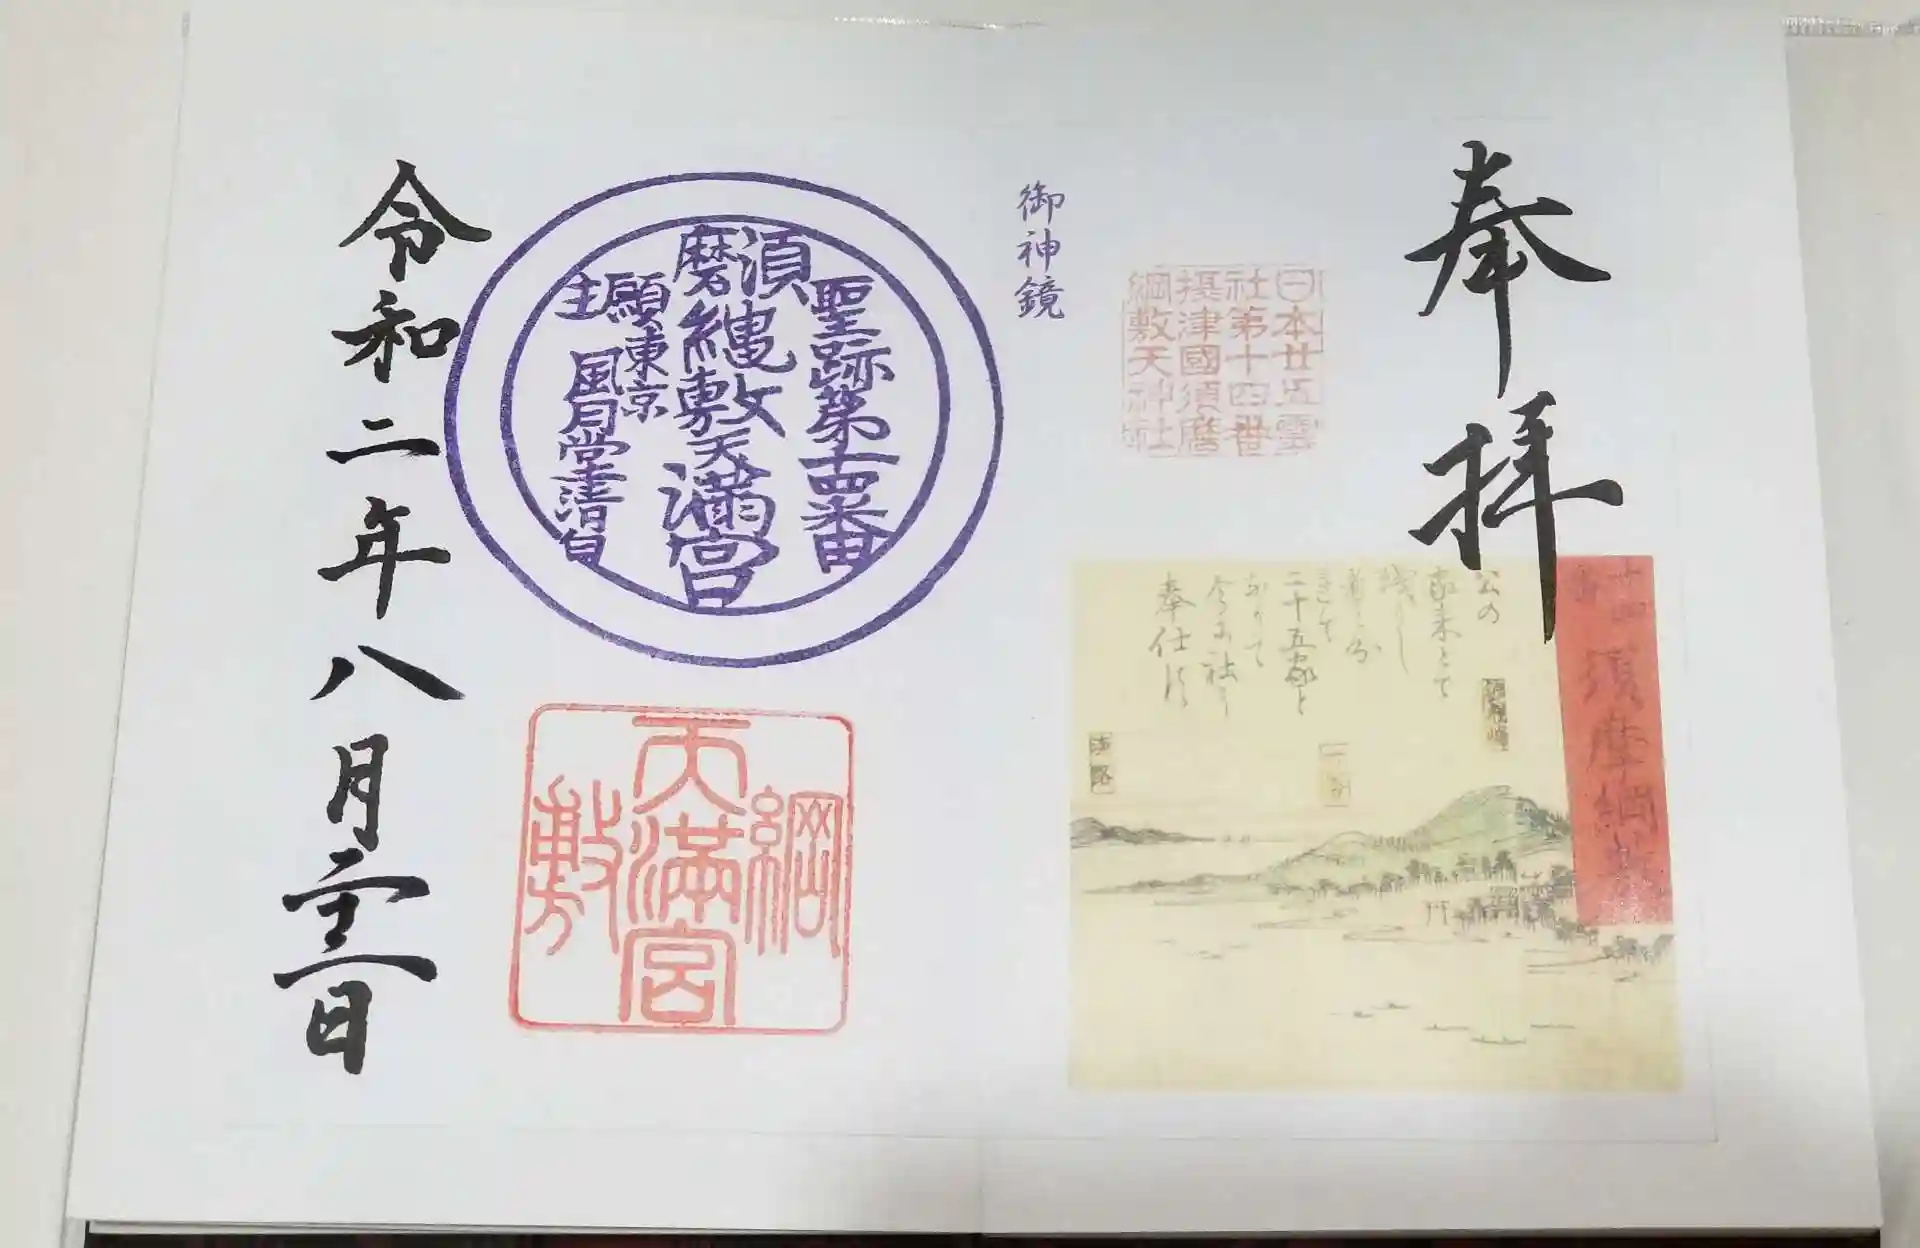 奉拝
日本廿五霊
社第十四番
摂津國須磨
綱敷天神社
十四番 須摩綱敷
公の
家来とて
残りし
二十五家と
なりて
今に社に
奉仕す
御神鏡
聖跡第十四番
須磨縄敷天満宮
願主
東京
風月堂清白
天満宮
綱敷
令和二年八月二十二日